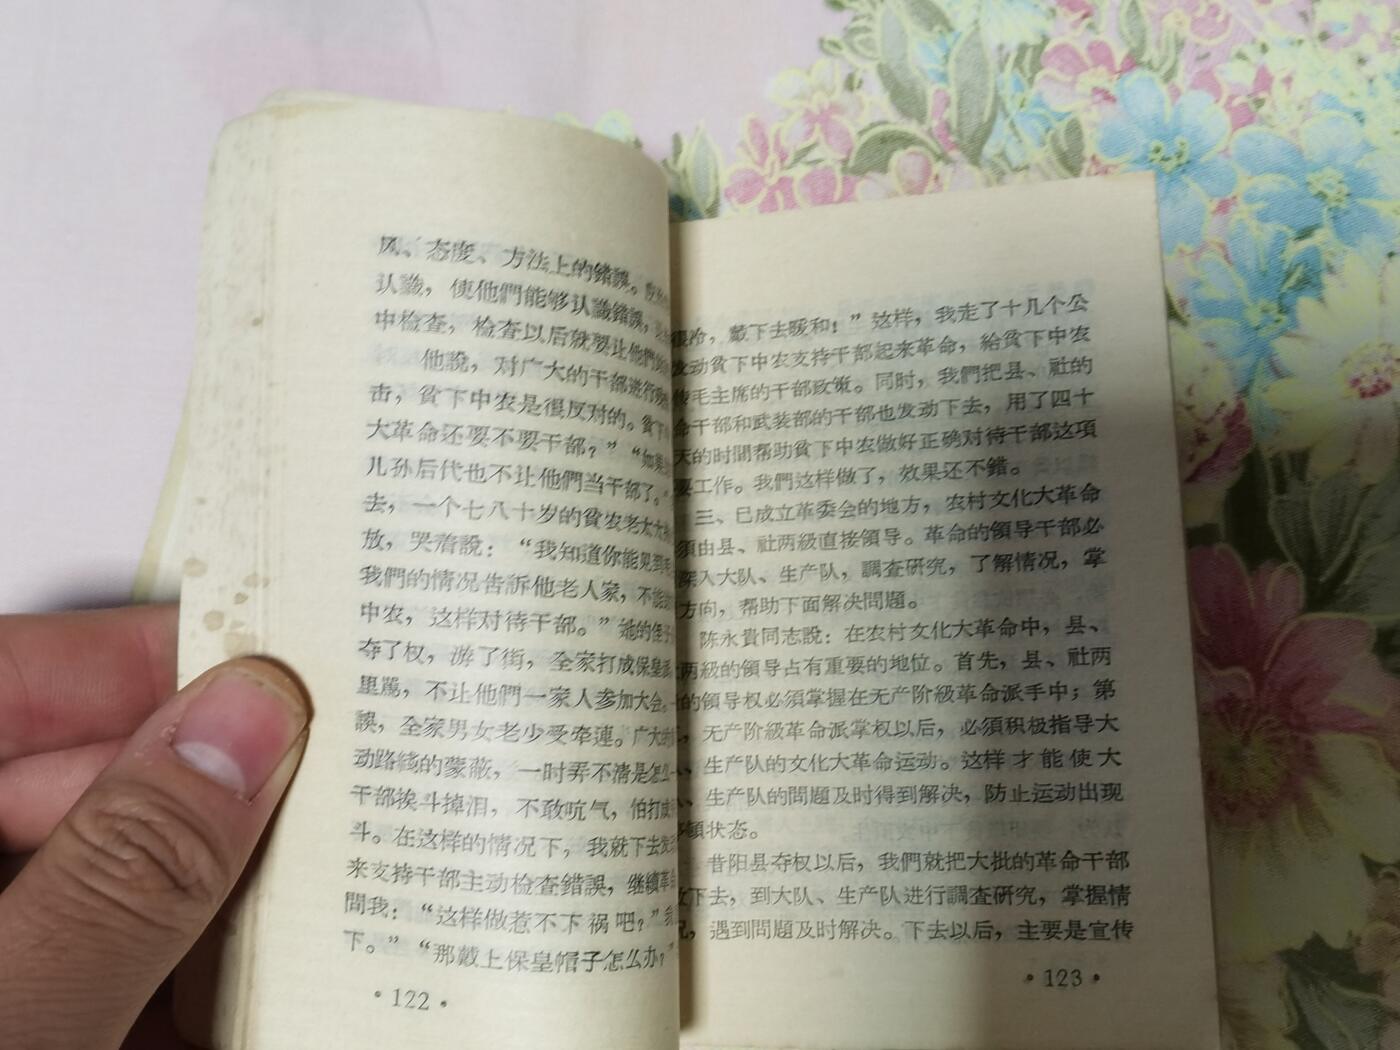 风、态度、方法上的錯誤。
认識，使他們能够认識錯誤，
中检查，检查以后就要让他們
他說，对广大的干部进行
击，貧下中农是很反对的。貧下
大革命还要不要干部？”“如果
儿孙后代也不让他們当干部了。”
去，一个七八十岁的貧农老太太
放，哭着說：“我知道你能见到
我們的情况告訴他老人家，不能
中农，这样对待干部。”她的侄子
夺了权，游了街，全家打成保皇
里罵，不让他們一家人参加大会。
誤，全家男女老少受牵連。广大
动路綫的蒙蔽，一时弄不清是怎么
干部挨斗掉泪，不敢吭气，怕打成
斗。在这样的情况下，我就下去发
来支持干部主动检查錯誤，继續革
問我：“这样做惹不下祸吧？”
下。”“那戴上保皇帽子怎么办？”
·122·
很冷，戴下去暖和！”这样，我走了十几个公
发动貧下中农支持干部起来革命，給貧下中农
毛主席的干部政策。同时，我們把县、社的
命干部和武装部的干部也发动下去，用了四十
天的时間帮助貧下中农做好正确对待干部这項
要工作。我們这样做了，效果还不錯。
三、已成立革委会的地方，农村文化大革命
須由县、社两級直接領导。革命的領导干部必
深入大队、生产队，調查研究，了解情况，掌
方向，帮助下面解决問題。
陈永貴同志說：在农村文化大革命中，县、
两級的領导占有重要的地位。首先，县、社两
的領导权必須掌握在无产阶級革命派手中；第
，无产阶級革命派掌权以后，必須积极指导大
、生产队的文化大革命运动。这样才能使大
、生产队的問題及时得到解决，防止运动出现
頓状态。
昔阳县夺权以后，我們就把大批的革命干部
下去，到大队、生产队进行調查研究，掌握情
况，遇到問題及时解决。下去以后，主要是宣传
·123·